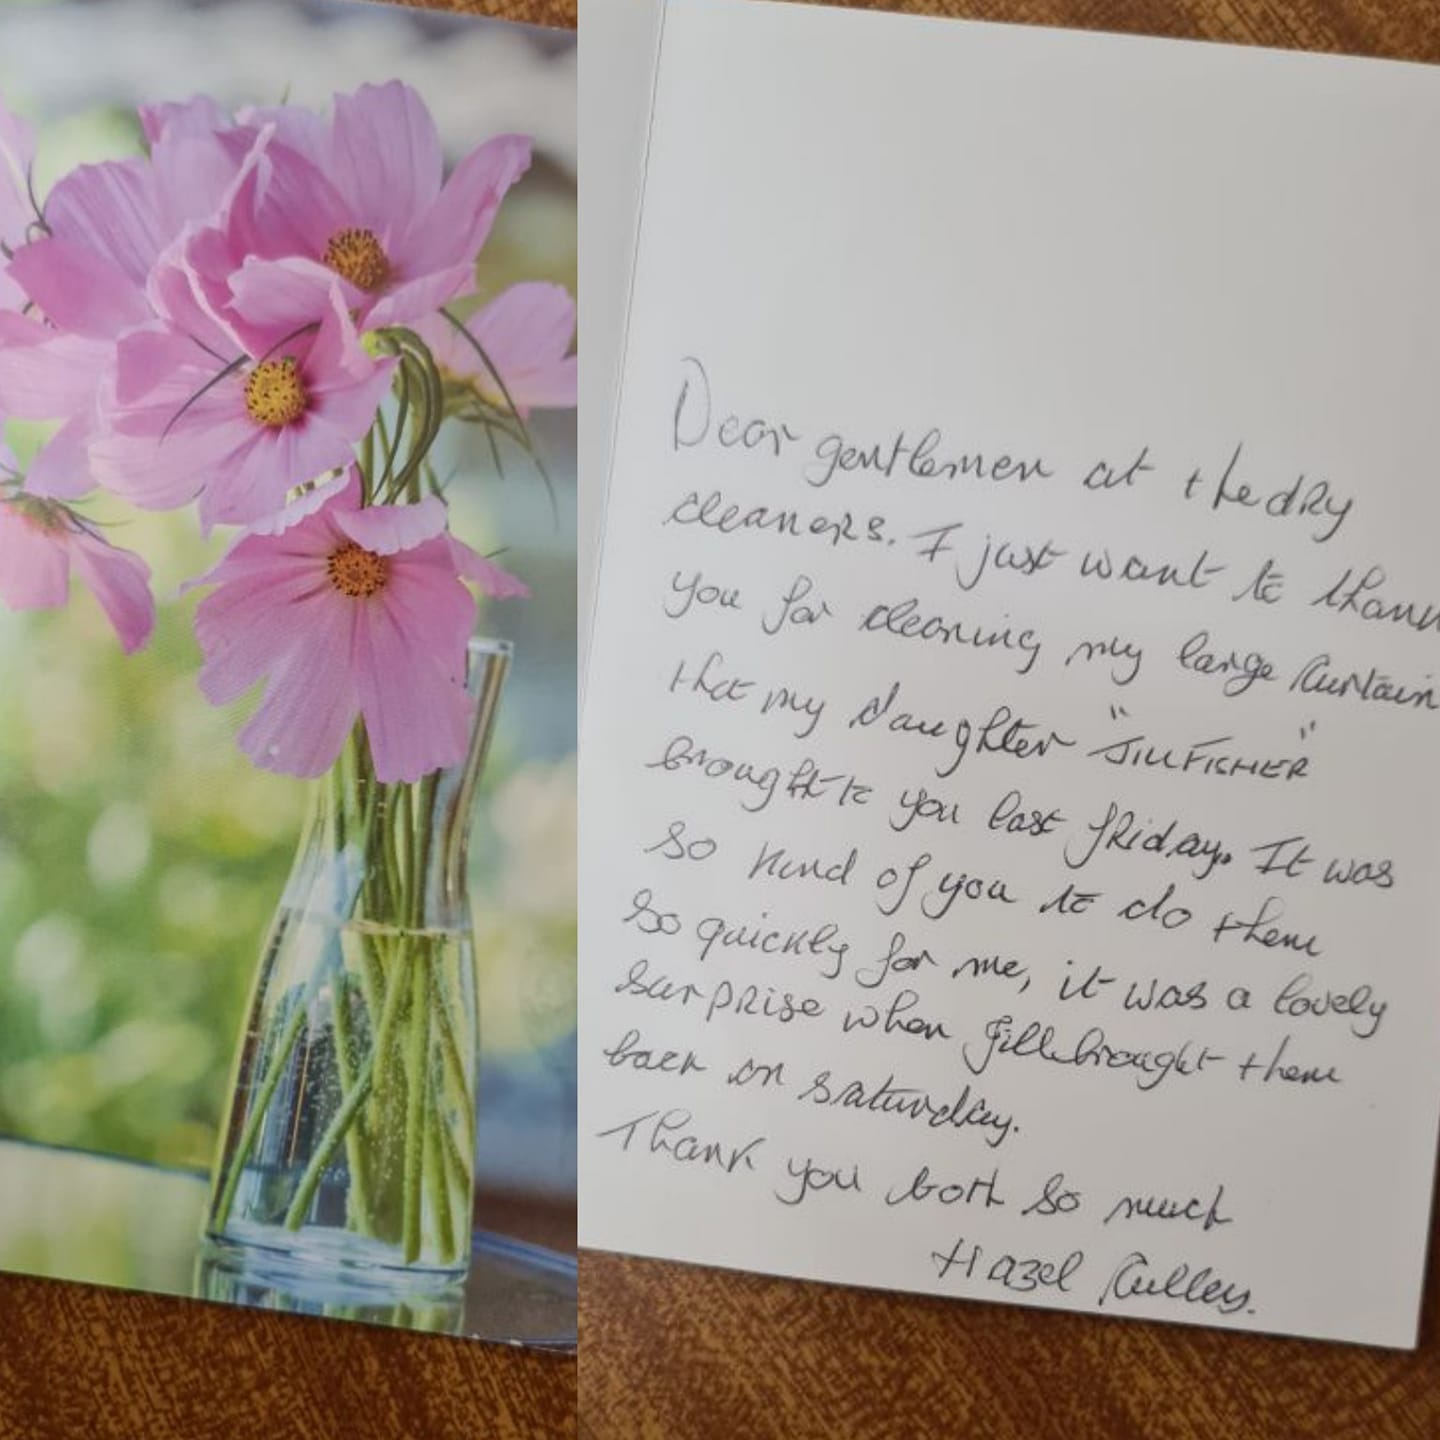 Dear gentlemen at the dry
cleaners. I just want to thank
you for cleaning my large Curtain
that my daughter "JILL FISHER"
brought to you last friday. It was
so kind of you to do them
so quickly for me, it was a lovely
surprise when Jill brought them
back on saturday.
Thank you both so much
Hazel Culley.